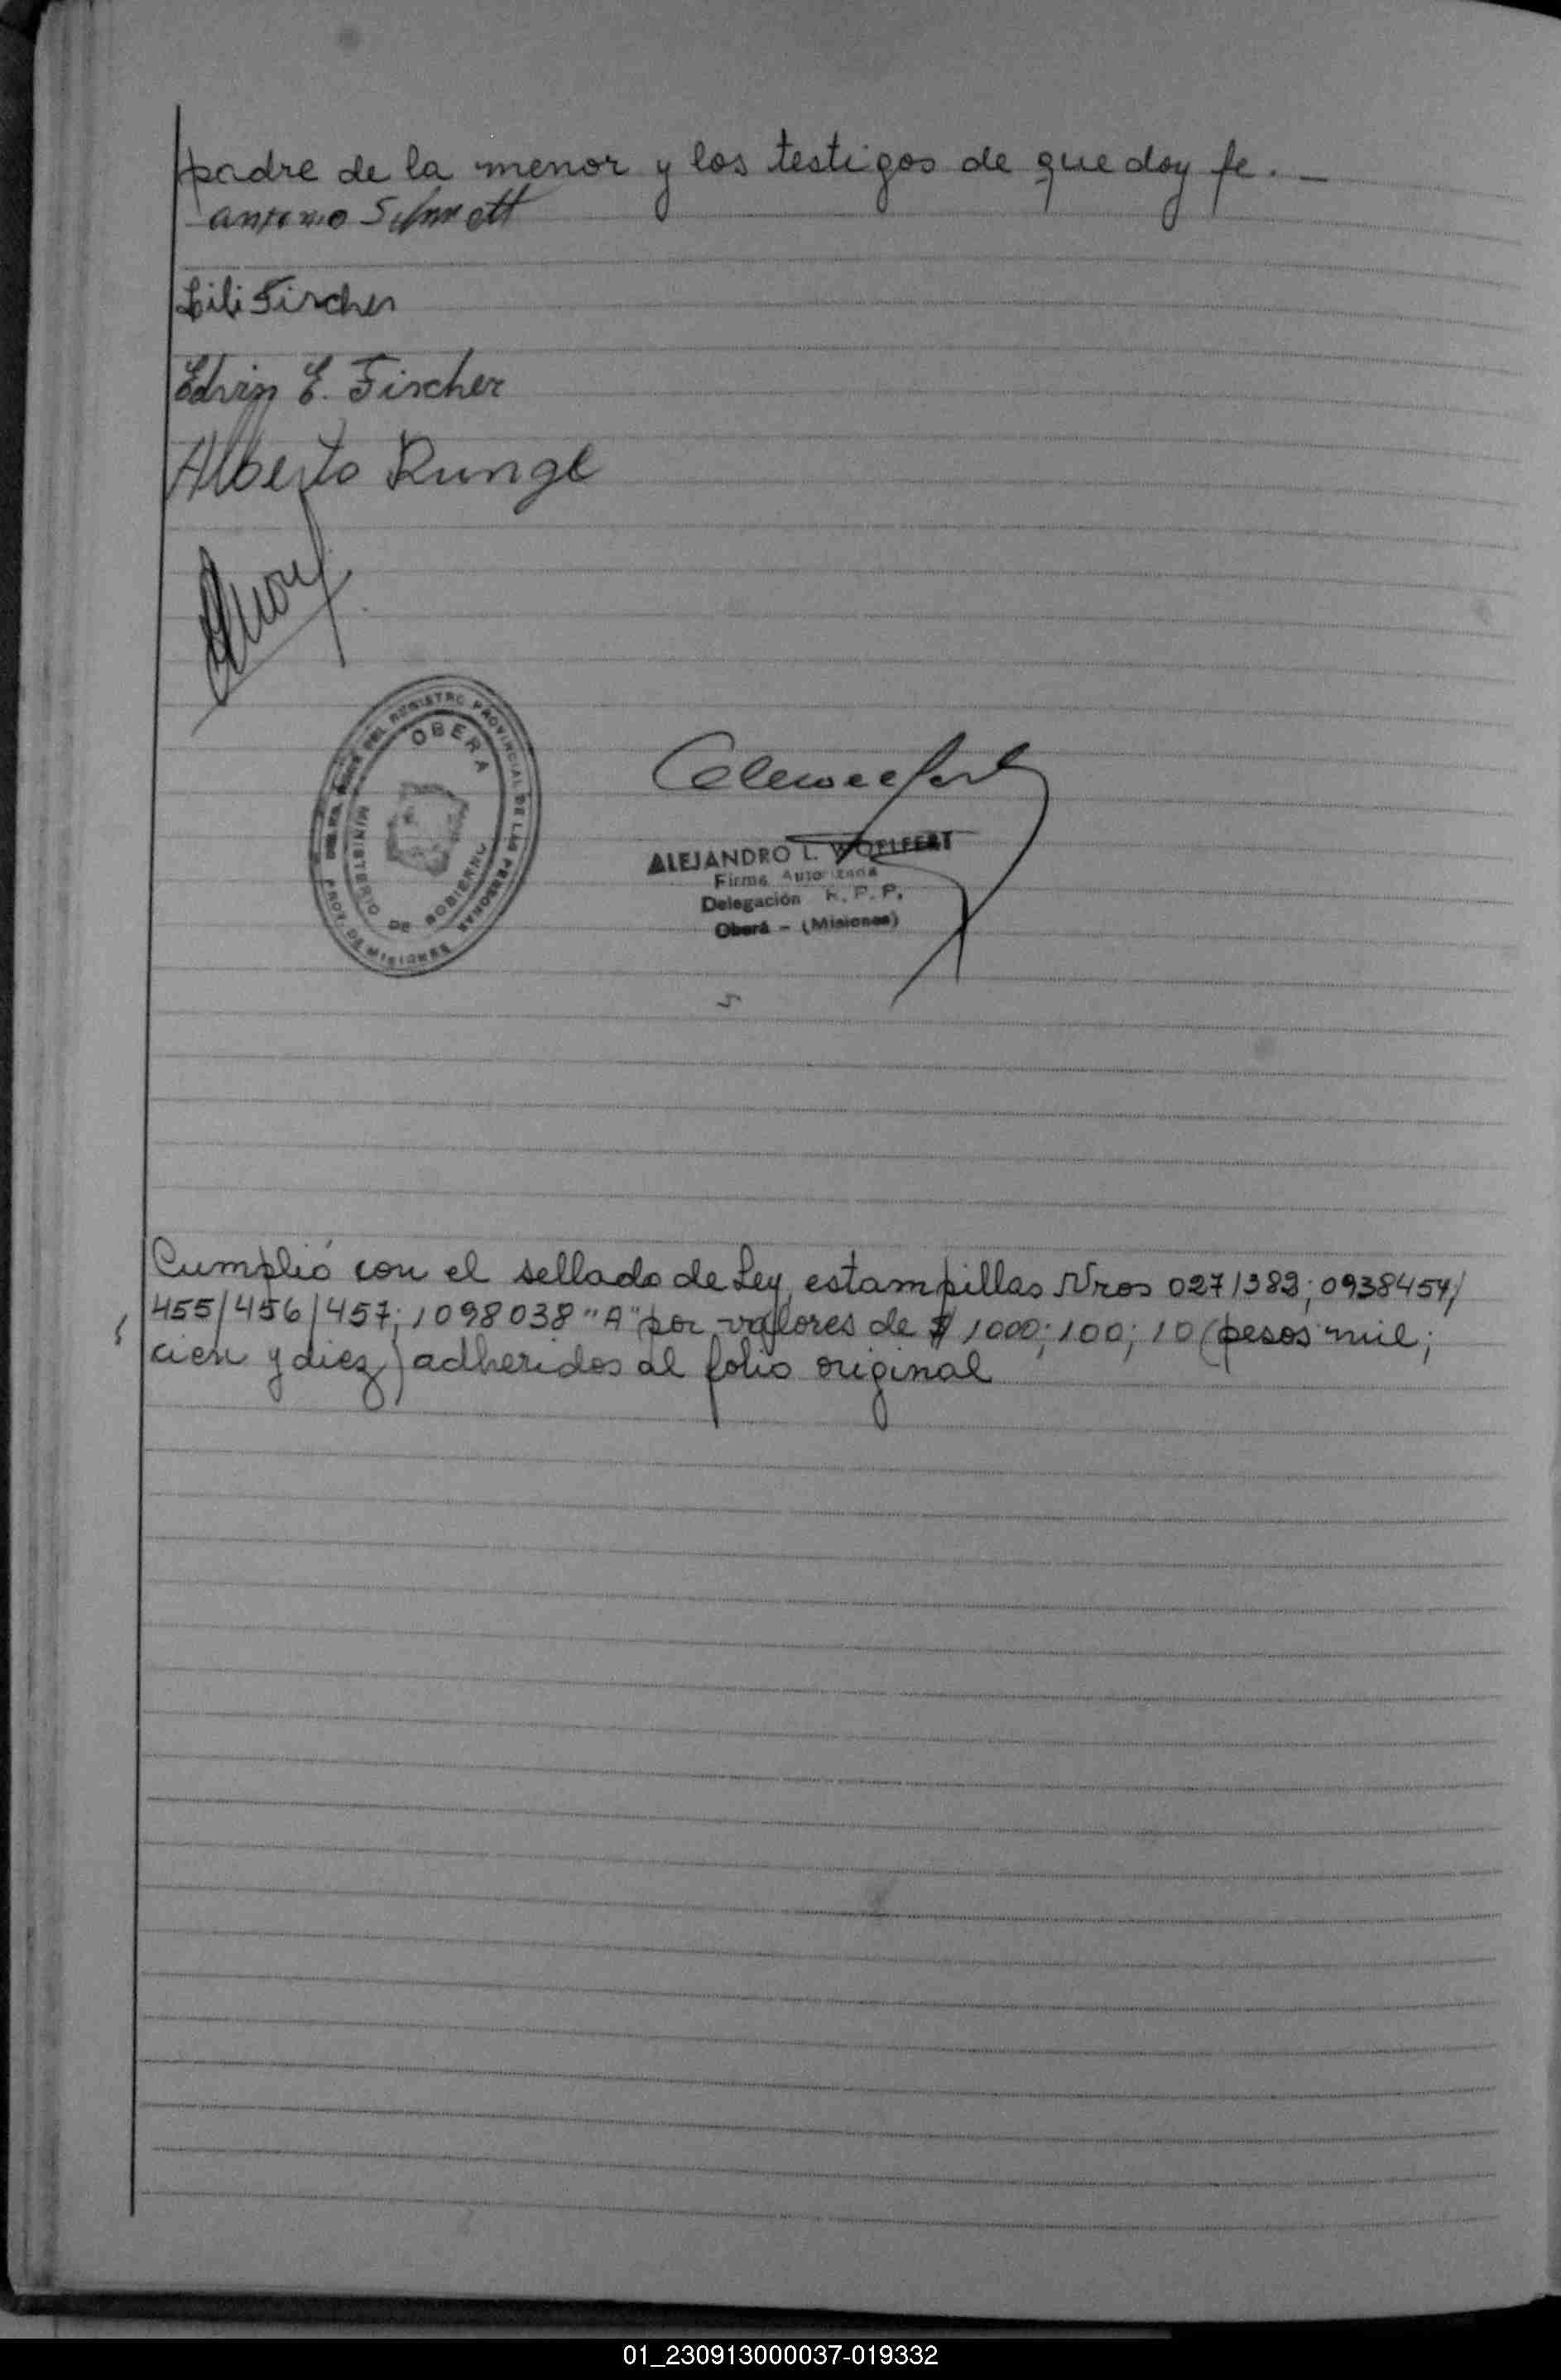 padre de la menor y los testigos de que doy fe. —
antonio Schmott
Lili Fischer
Edvin E. Fischer
Alberto Runge
DEL REGISTRO PROVINCIAL DE LAS PERSONAS
OBERA
MINISTERIO DE GOBIERNO
PROV. DE MISIONES
ALEJANDRO L. WOELFERT
Firma Autorizada
Delegación R. P. P.
Oberá - (Misiones)
Cumplió con el sellado de Ley, estampillas Nros 0271383; 0938454/
455/456/457; 1098038 "A" por valores de $ 1000; 100; 10 (pesos mil;
cien y diez) adheridos al folio original
01_230913000037-019332